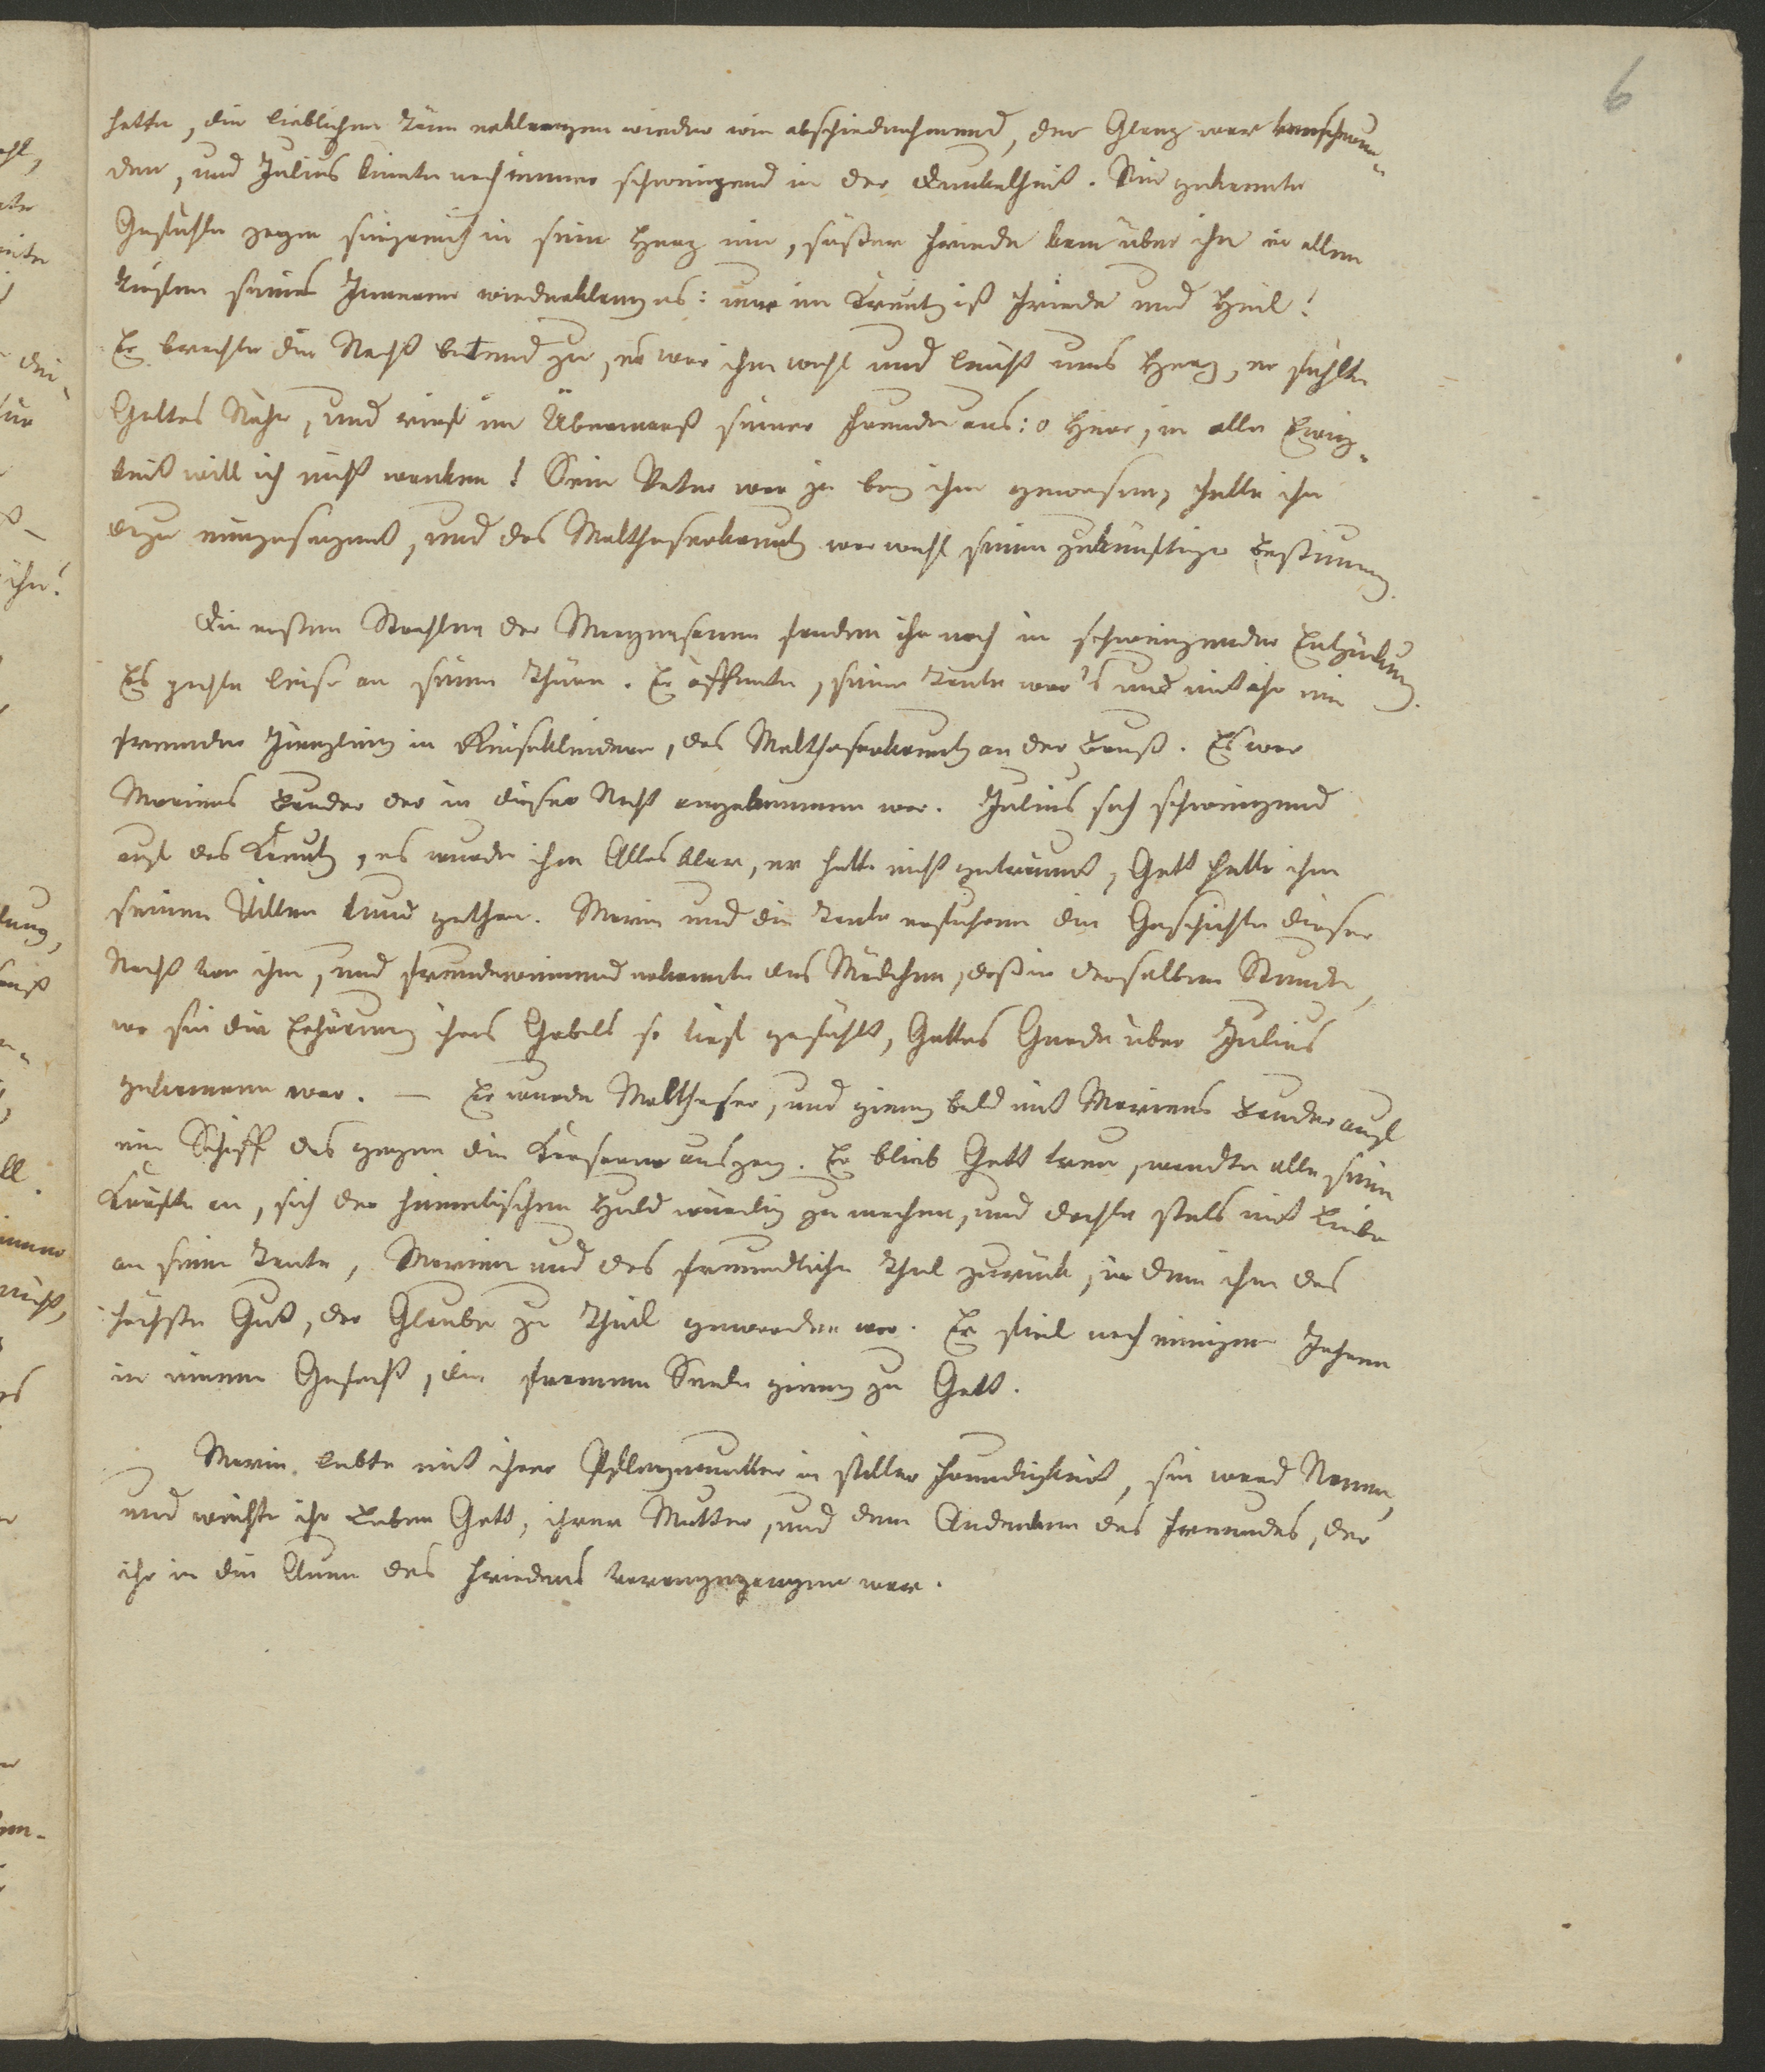 6
hatte, die lieblichen Töne erklangen wieder wie abschiednehmend, der Glanz war verschwun-
den, und Julius kniete noch immer schweigend in der Dunkelheit. Nie gekannte
Gefühle zogen siegreich in sein Herz ein, süßer Friede kam über ihn in allen
Tiefen seines Inneren wiedererklang es: nur im Kreutz ist Friede und Heil!
Er brachte die Nacht betend zu, es war ihm wohl und leicht ums Herz, er fühlte
Gottes Nähe, und rief im Übermaaß seiner Freude aus: o Herr, in alle Ewig-
keit will ich nicht wanken! Sein Vater war ja bey ihm gewesen, hatte ihn
dazu eingesegnet, und das Malthaserkreutz war wohl seine zukünftige Bestimmung.
Die ersten Strahlen der Morgensonne fanden ihn noch in schweigender Entzückung.
Es pochte leise an seine Thüre. Er öffnete, seine Tante war's und mit ihr ein
fremder Jüngling in Reisekleidern, das Malthaserkreutz an der Brust. Es war
Mariens Bruder der in dieser Nacht angekommen war. Julius sah schweigend
auf das Kreutz, es wurde ihm Alles klar, er hatte nicht geträumt, Gott hatte ihm
seinen Willen kund gethan. Marie und die Tante erfuhren die Geschichte dieser
Nacht von ihm, und freudeweinend erkannte das Mädchen, daß in derselben Stunde,
wo sie die Erhörung ihres Gebets so tief gefühlt, Gottes Gnade über Julius
gekommen war. — Er wurde Malthaser, und gieng bald mit Mariens Bruder auf
ein Schiff das gegen die Korsaren auszog. Er blieb Gott treu, wandte alle seine
Kräfte an, sich der himmlischen Huld würdig zu machen, und dachte stets mit Liebe
an seine Tante, Marien und das freundliche Thal zurück, in dem ihm das
höchste Gut, der Glaube zu Theil geworden war. Er fiel nach einigen Jahren
in einem Gefecht, die fromme Seele gieng zu Gott.
Marie lebte mit ihrer Pflegemutter in stiller Freudigkeit, sie ward Nonne,
und weihte ihr Leben Gott, ihrer Mutter, und dem Andenken des Freundes, der
ihr in die Auen des Friedens vorangegangen war.